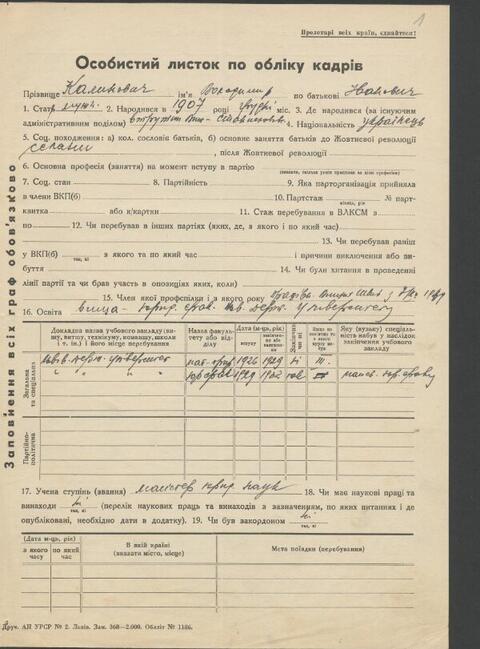 1
Пролетарі всіх країн, єднайтеся!
Особистий листок по обліку кадрів
Прізвище Калинович ім'я Володимир по батькові Іванович
1. Стать 2. Народився в 1907 році грудні міс. 3. Де народився (за існуючим
адміністративним поділом) 4. Національність українець
5. Соц. походження: а) кол. сословія батьків, б) основне заняття батьків до Жовтневої революції
селяни , після Жовтневої революції
6. Основна професія (заняття) на момент вступу в партію
(вказати, скільки років працював за цією професією)
7. Соц. стан 8. Партійність 9. Яка парторганізація прийняла
в члени ВКП(б) 10. Партстаж № парт-
місяць, рік
квитка або к/картки 11. Стаж перебування в ВЛКСМ з
по 12. Чи перебував в інших партіях (яких, де, з якого і по який час)
13. Чи перебував раніш
у ВКП(б) з якого та по який час і причини виключення або ви-
так, ні
буття 14. Чи були хитання в проведенні
лінії партії та чи брав участь в опозиціях яких, коли)
15. Член якої профспілки і з якого року
16. Освіта вища - юрид. держ. університет
Заповнення всіх граф обов'язково
Докладна назва учбового закладу (ви-
шу, втишу, технікуму, комвишу, школи
і т. ін.) і його місце перебування
Назва факуль-
тету або від-
ділу
Дата (м-ць, рік)
вступу
закінчен-
ня або
залишен-
ня
Закінчив
чи ні
Яку (вузьку) спеціаль-
ність набув у наслідок
закінчення учбового
закладу
Загальна
та спеціальна
Львів. держ. університет 1926 1929 ні III.
" " " 1929 1932
Партійно-
політична
17. Учена ступінь (звання) магістер юрид. наук 18. Чи має наукові праці та
винаходи ні (перелік наукових праць та винаходів з зазначенням, по яких питаннях і де
так, ні
опубліковані, необхідно дати в додатку). 19. Чи був закордоном ні
так, ні
(Дата м-ць, рік)
з якого
часу
по який
час
В якій країні
(вказати місто, місце)
Мета поїздки (перебування)
Друк. АП УРСР № 2. Львів. Зам. 368—2.000. Обліт № 1186.